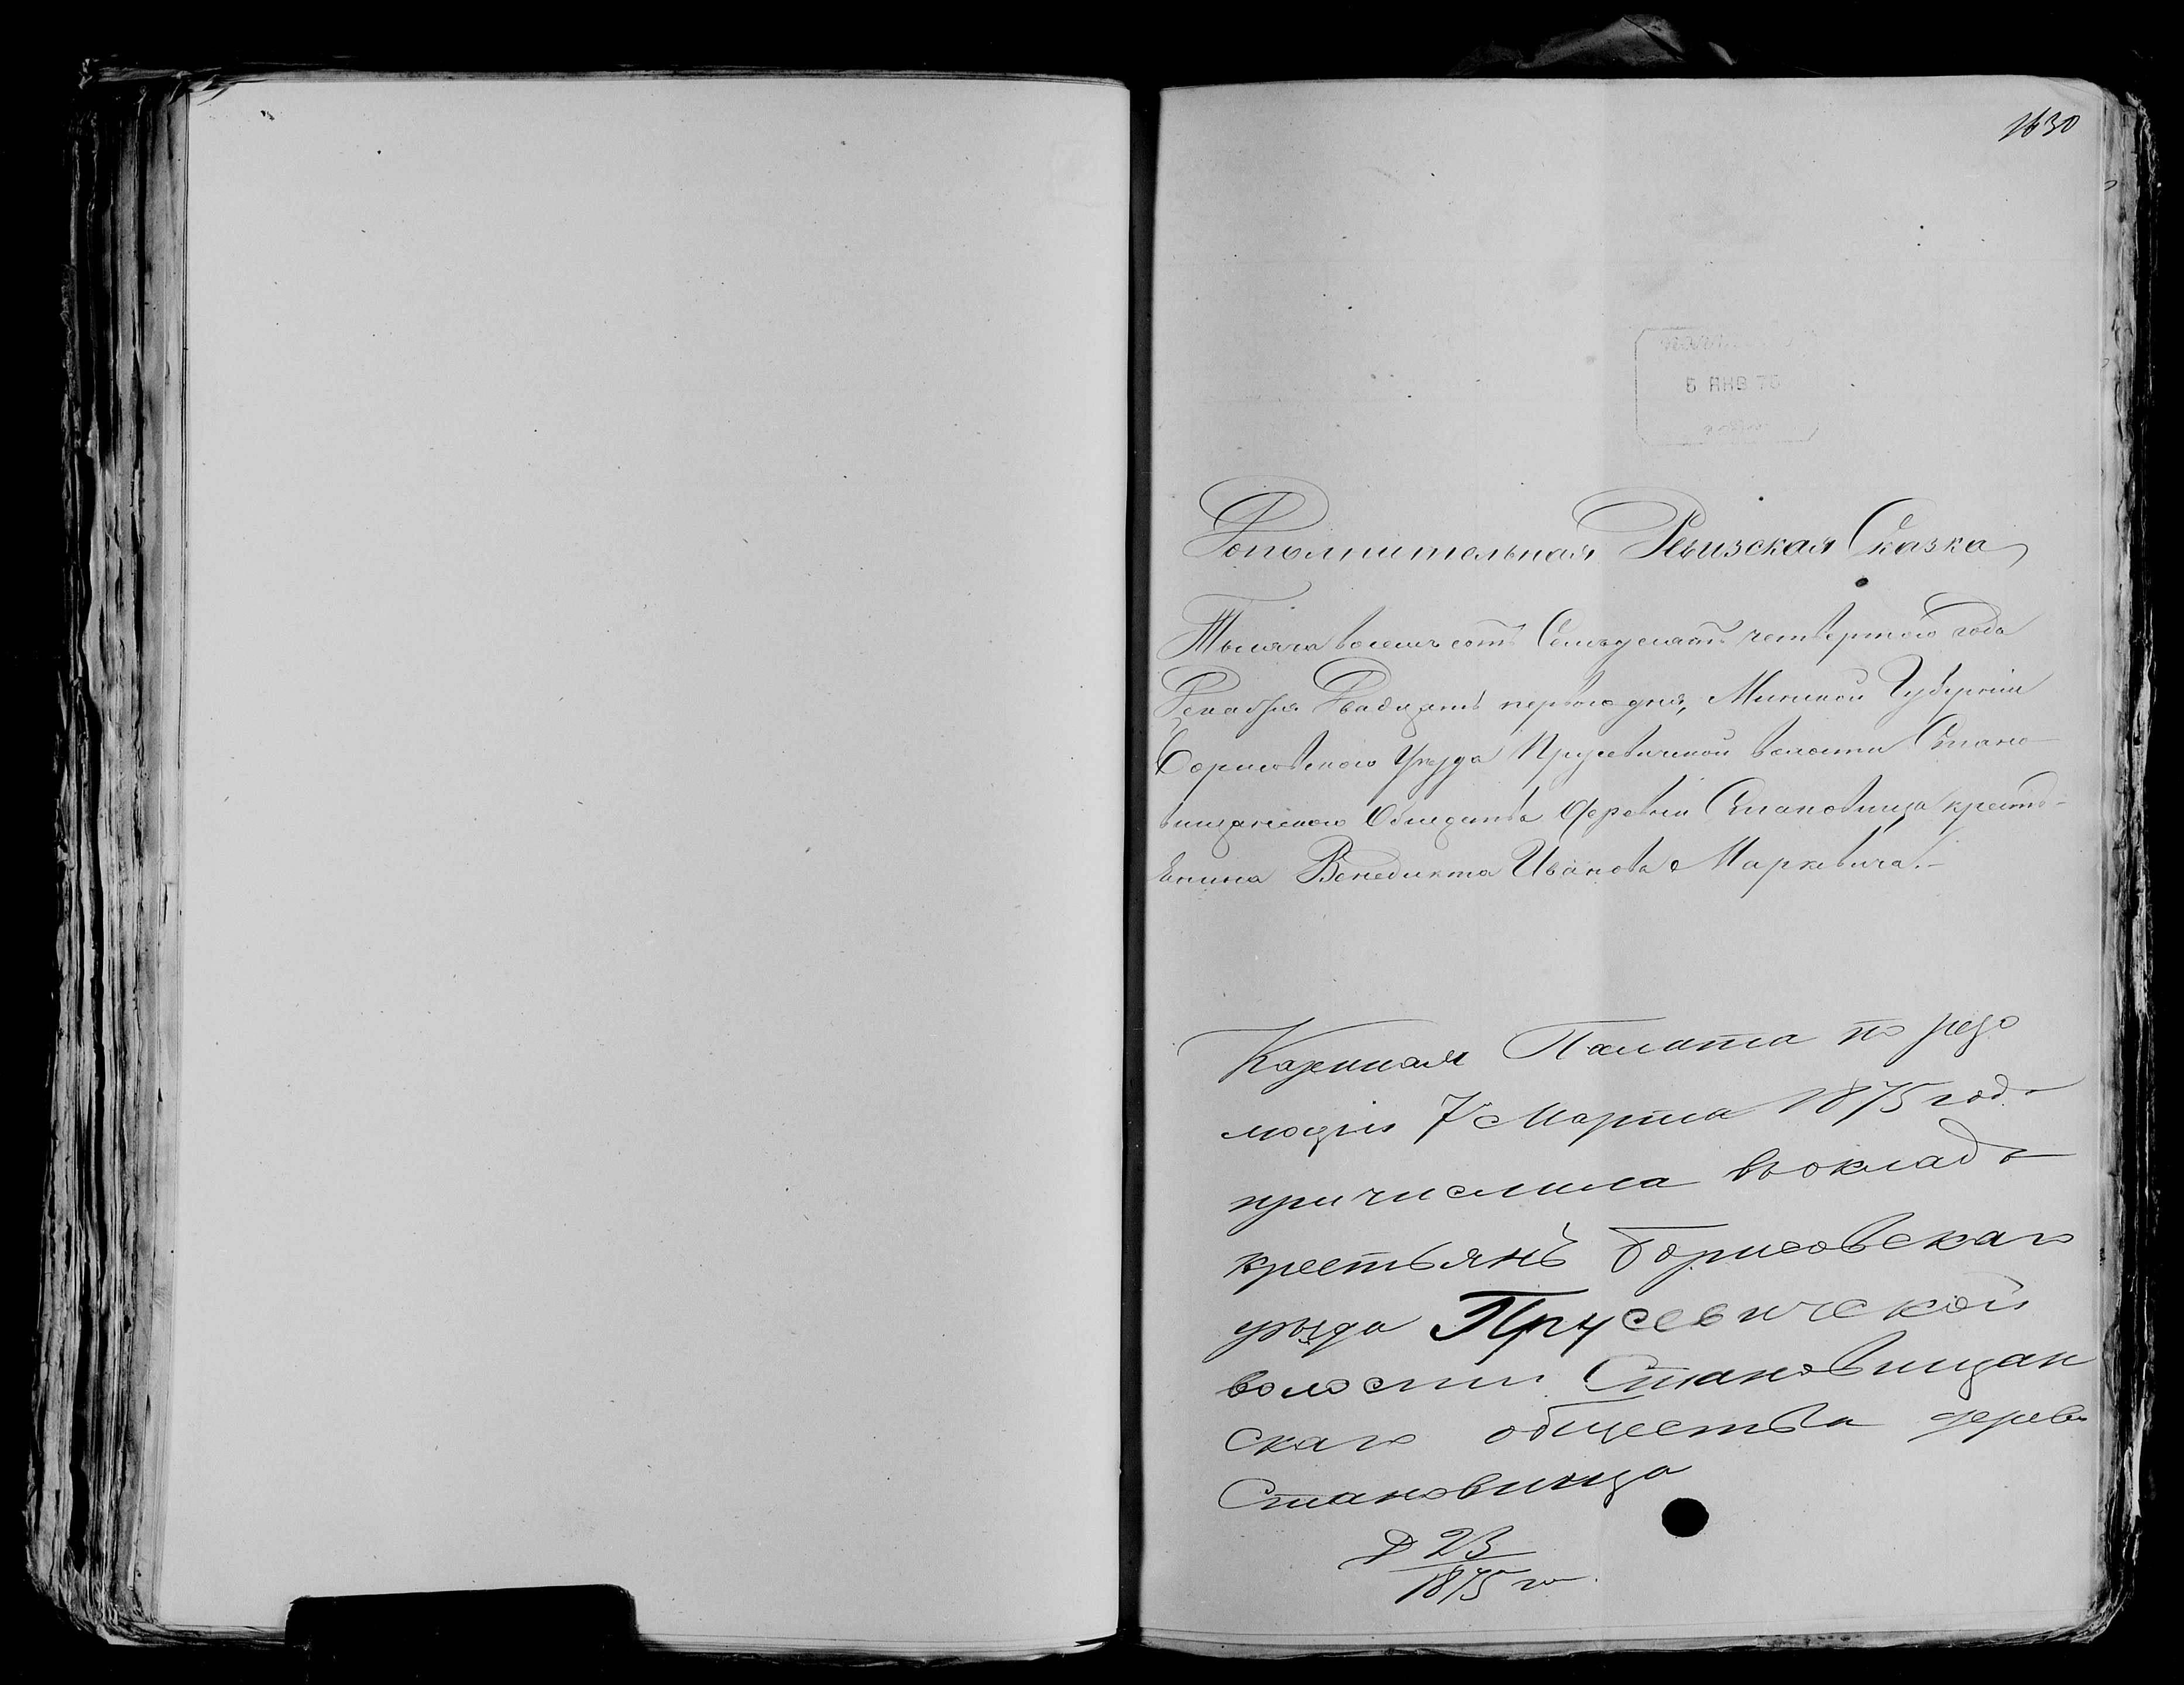 1630
5 ЯНВ 75
Дополнительная Ревизская Сказка
Тысяча восемьсотъ Семьдесятъ четвертого года
Декабря Двадцать первого дня, Минской Губерніи
Борисовского Уѣзда Прусевичской волости Стано-
вищанского Общества деревни Становища крестья-
нина Венедикта Иванова Маркевича.-
Казенная Палата по резо
люціи 7 Марта 1875 года
причислила въ окладъ
крестьянъ Борисовскаго
уѣзда Прусевической
волости Становищан
скаго общества дерев
Становища
Д 23
1875 г